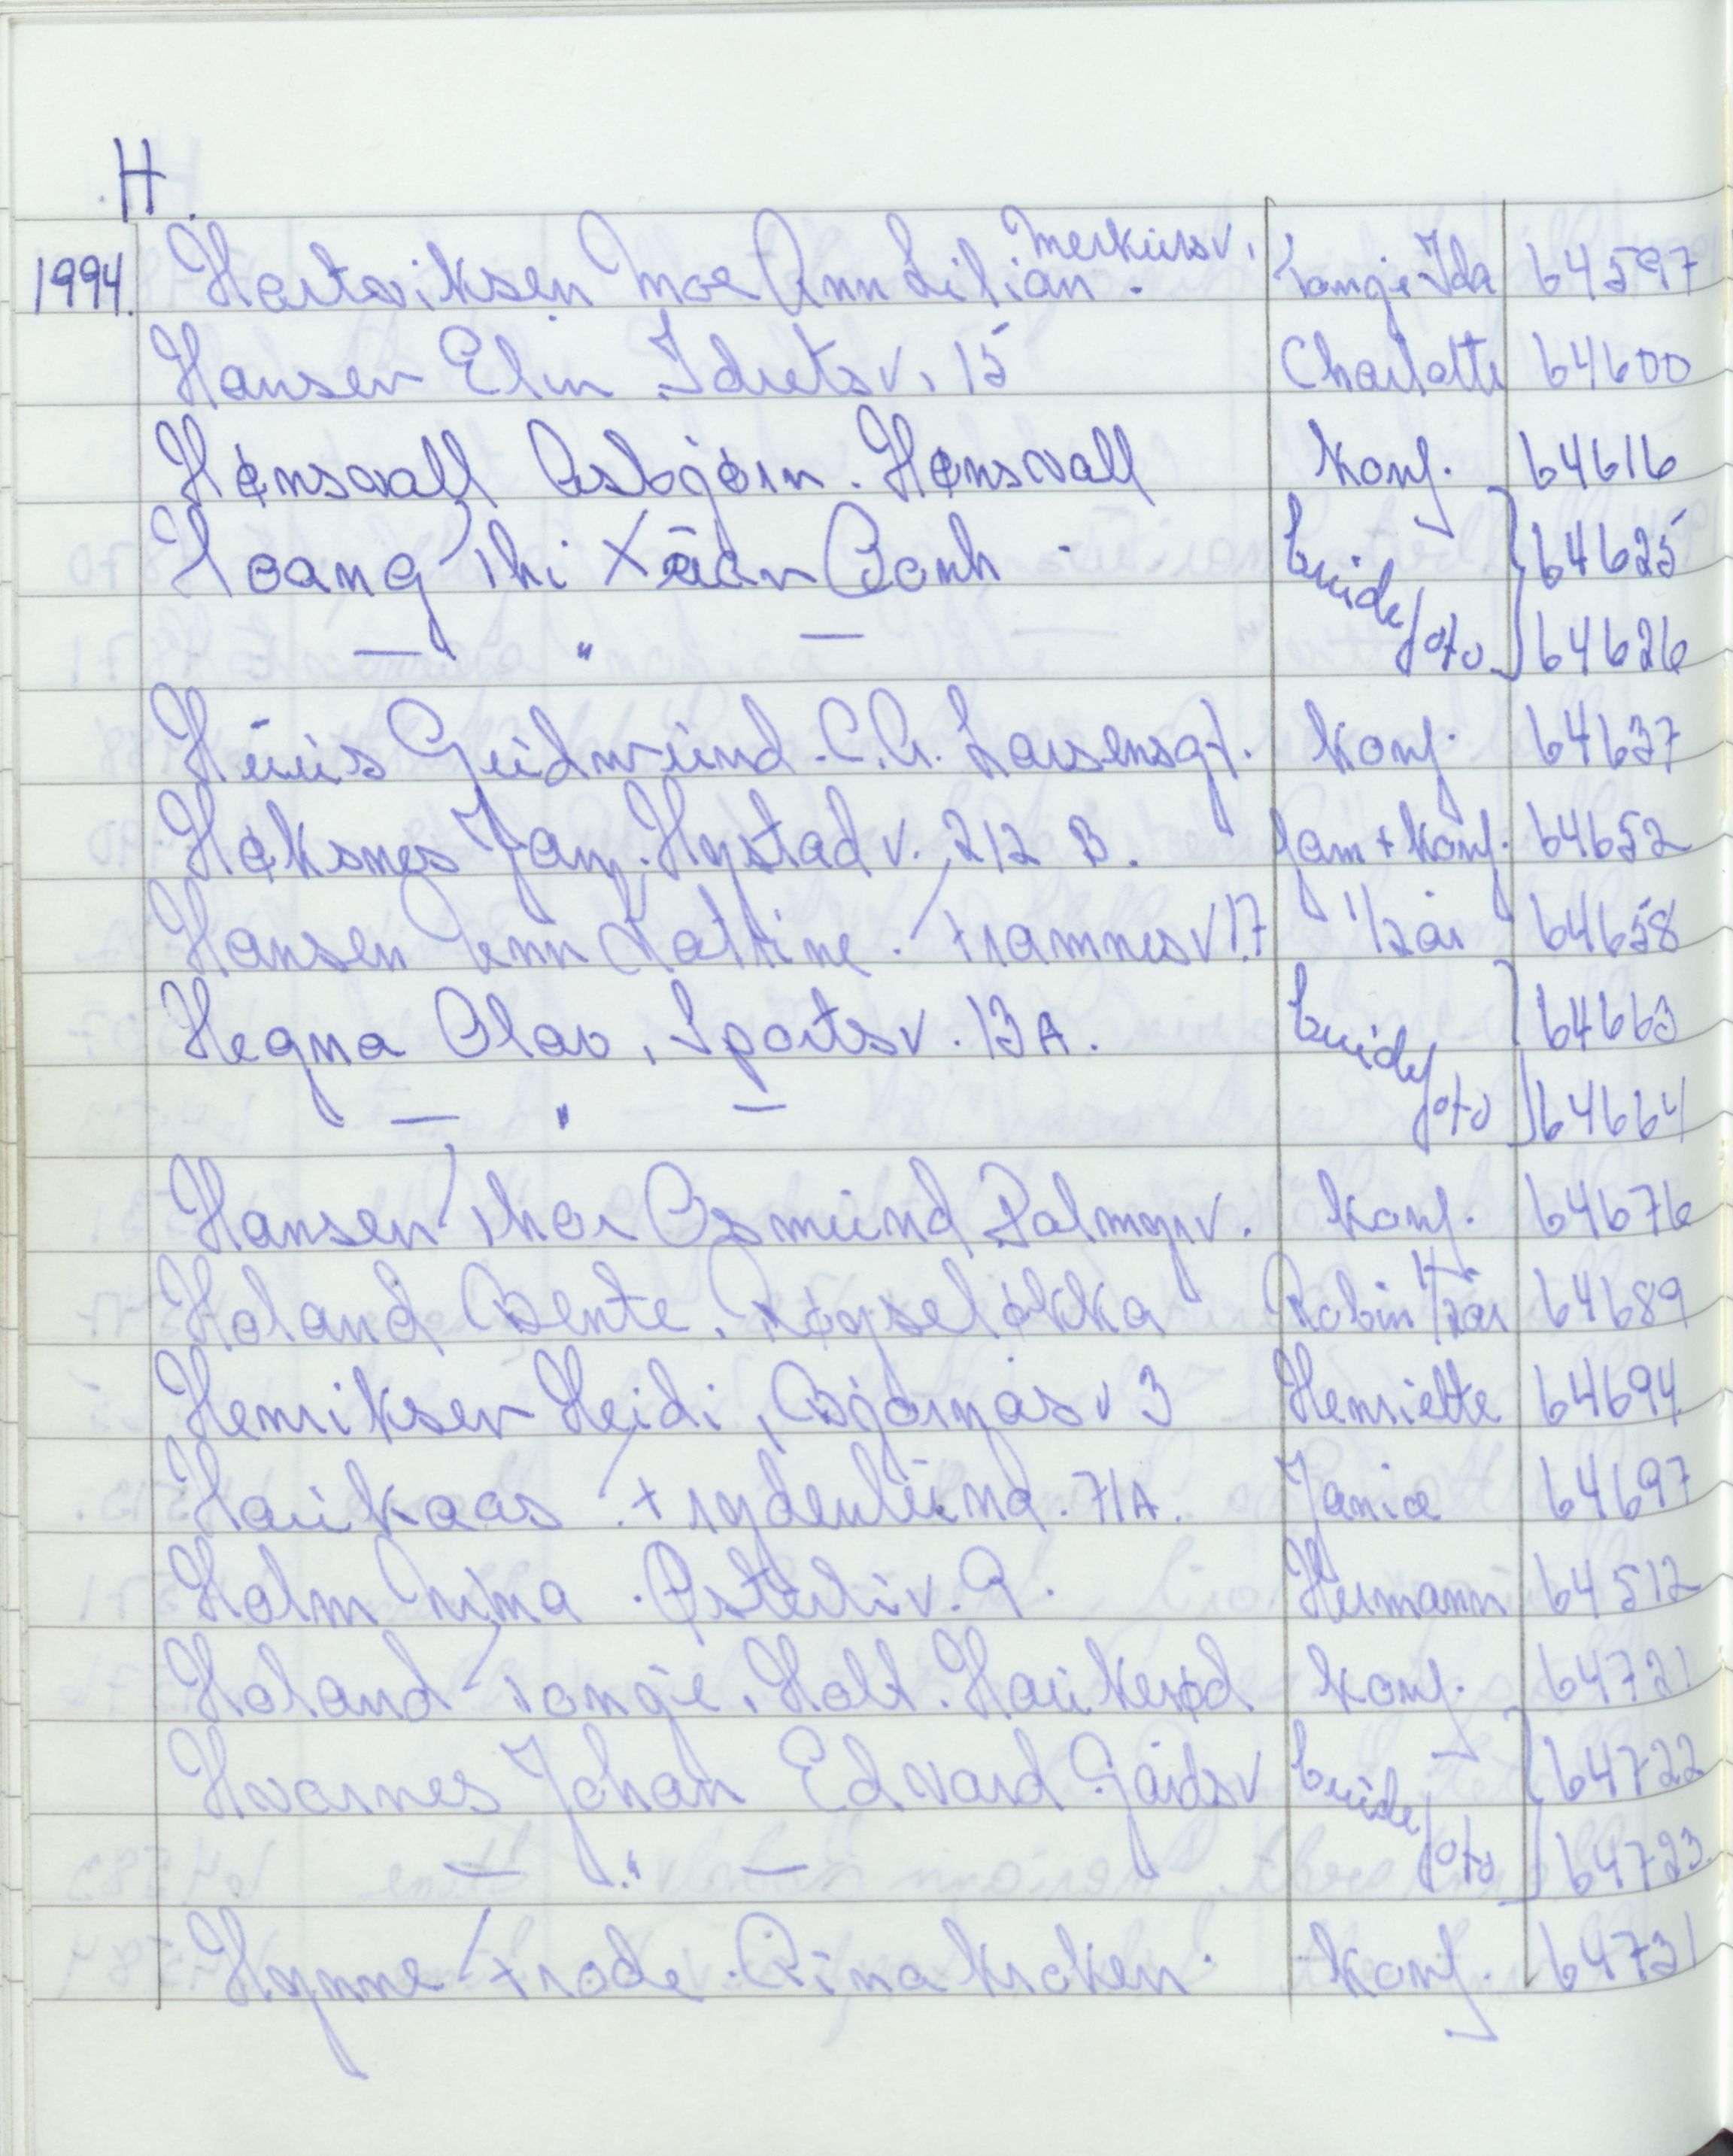 H.
1994. Hartviksen Moe Ann Lilian. Merkursv. Tonje Ida 64597
Hansen Elin Idretsv. 15 Charlotte 64600
Hønsvall Asbjørn. Hønsvall Konf. 64616
Hoang Thi Xuan Banh brude 64625
— " — foto 64626
Huus Gudmund C.A. Larsensgt. Konf. 64637
Høksnes Jan. Nystadv. 212 B. fam + Konf. 64652
Hansen Ann Katrine. Framnesv 17 1/2 år 64658
Hegna Olav, Sportsv. 13A. brude 64663
— " — foto 64664
Hansen Thor Asmund Palmyrv. Konf. 64676
Holand Bente. Røyseløkka Robin 1/2 år 64689
Henriksen Heidi, Bjørnåsv 3 Henriette 64694
Haukaas. Frydenlund. 71A. 64697
Holm Nina. Østerliv. 9. Hermann 64512
Holand Tonje. Holt. Haukerød Konf. 64721
Hvarnes Johan Edvard Gårdsv brude 64722
— " — foto 64723
Hynne Frode. Konf. 64731